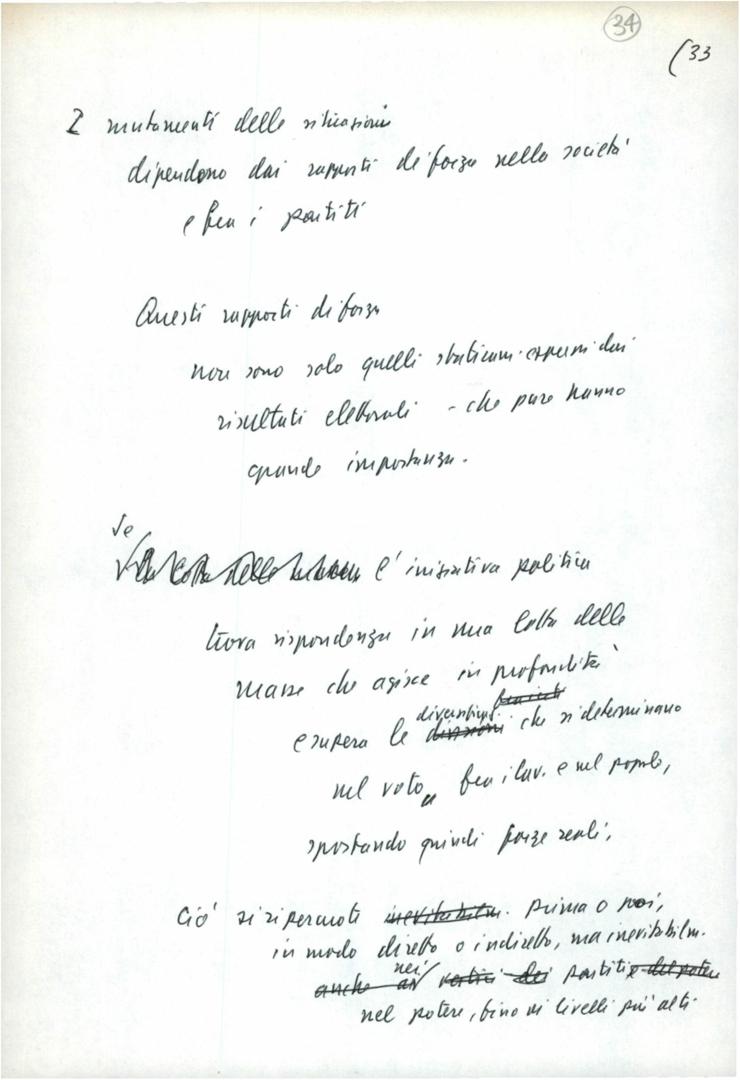 34
(33
I mutamenti delle situazioni
dipendono dai rapporti di forza nella società
e fra i partiti
Questi rapporti di forza
non sono solo quelli staticam. espressi dai
risultati elettorali - che pure hanno
grande importanza.
Se
l'iniziativa politica
trova rispondenza in una lotta delle
masse che agisce in profondità
e supera le divisioni che si determinano
nel voto fra i lav. e nel popolo,
spostando quindi forze reali,
Ciò si ripercuote inevitabilm. prima o poi,
in modo diretto o indiretto, ma inevitabilm.
nei
anche ai vertici dei partiti e del potere
nel potere, fino ai livelli più alti.